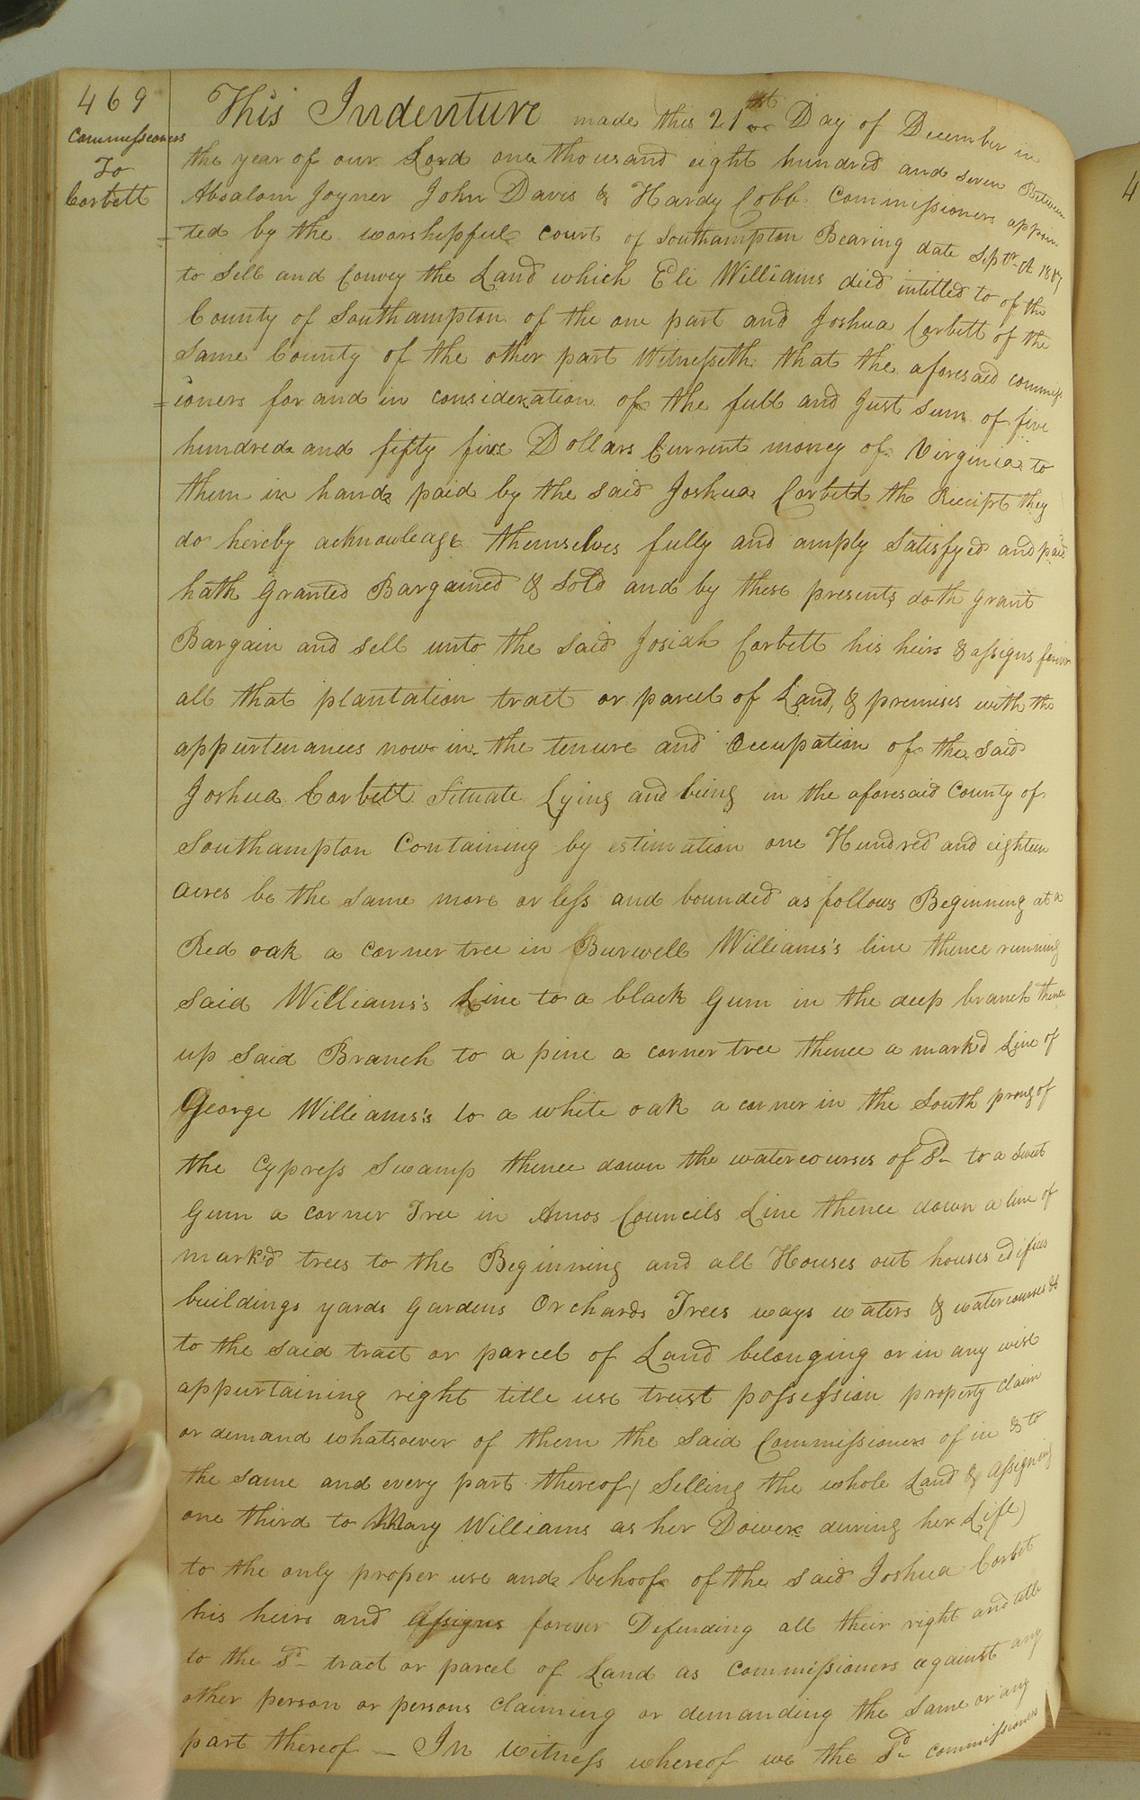 469
Commissioners
To
Corbett
This Indenture made this 21st Day of December in
the year of our Lord one thousand eight hundred and seven Between
Absalom Joyner John Davis & Hardy Cobb Commissioners appoin
=ted by the worshipful court of Southampton Bearing date Septr. Ct 1807
to Sell and Convey the Land which Eli Williams died intitled to of the
County of Southampton of the one part and Joshua Corbett of the
Same County of the other part Witnesseth that the aforesaid commiss
=ioners for and in consideration of the full and Just Sum of five
hundred and fifty five Dollars Current money of Virginia to
them in hand paid by the said Joshua Corbett the Receipt they
do hereby acknowleage themselves fully and amply Satisfyed and paid
hath Granted Bargained & Sold and by these presents doth Grant
Bargain and sell unto the Said Josiah Corbett his heirs & assigns forever
all that plantation tract or parcel of Land, & premises with the
appurtenances now in the tenure and Occupation of the said
Joshua Corbett Situate Lying and being in the aforesaid County of
Southampton Containing by estimation one Hundred and eighteen
acres be the same more or less and bounded as follows Beginning at a
Red oak a corner tree in Burwell Williams's line thence running
Said Williams's Line to a black Gum in the deep branch thence
up Said Branch to a pine a corner tree thence a mark'd Line of
George Williams's to a white oak a corner in the South prong of
the Cypress Swamp thence down the watercourses of Sd. to a Sweet
Gum a corner Tree in Amos Councils Line thence down a line of
mark'd trees to the Beginning and all Houses out houses edifices
buildings yards Gardens Orchards Trees ways waters & watercourses &c
to the said tract or parcel of Land belonging or in any wise
appurtaining right title use trust possession property claim
or demand whatsoever of them the Said Commissioners of in & to
the same and every part thereof ( Selling the whole Land & Assigning
one third to Mary Williams as her Dower during her Life)
to the only proper use and behoof of the said Joshua Corbet
his heirs and Assigns forever Defending all their right and title
to the Sd. tract or parcel of Land as Commissioners against any
other person or persons Claiming or demanding the Same or any
part thereof — In witness whereof we the Sd. commissioners
4